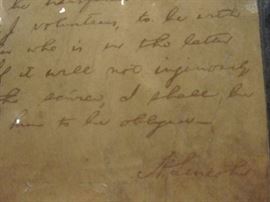 I volunteer, to be with
who is in the latter
If it will not injuriously
the service, I shall be
him to be obliged
A. Lincoln